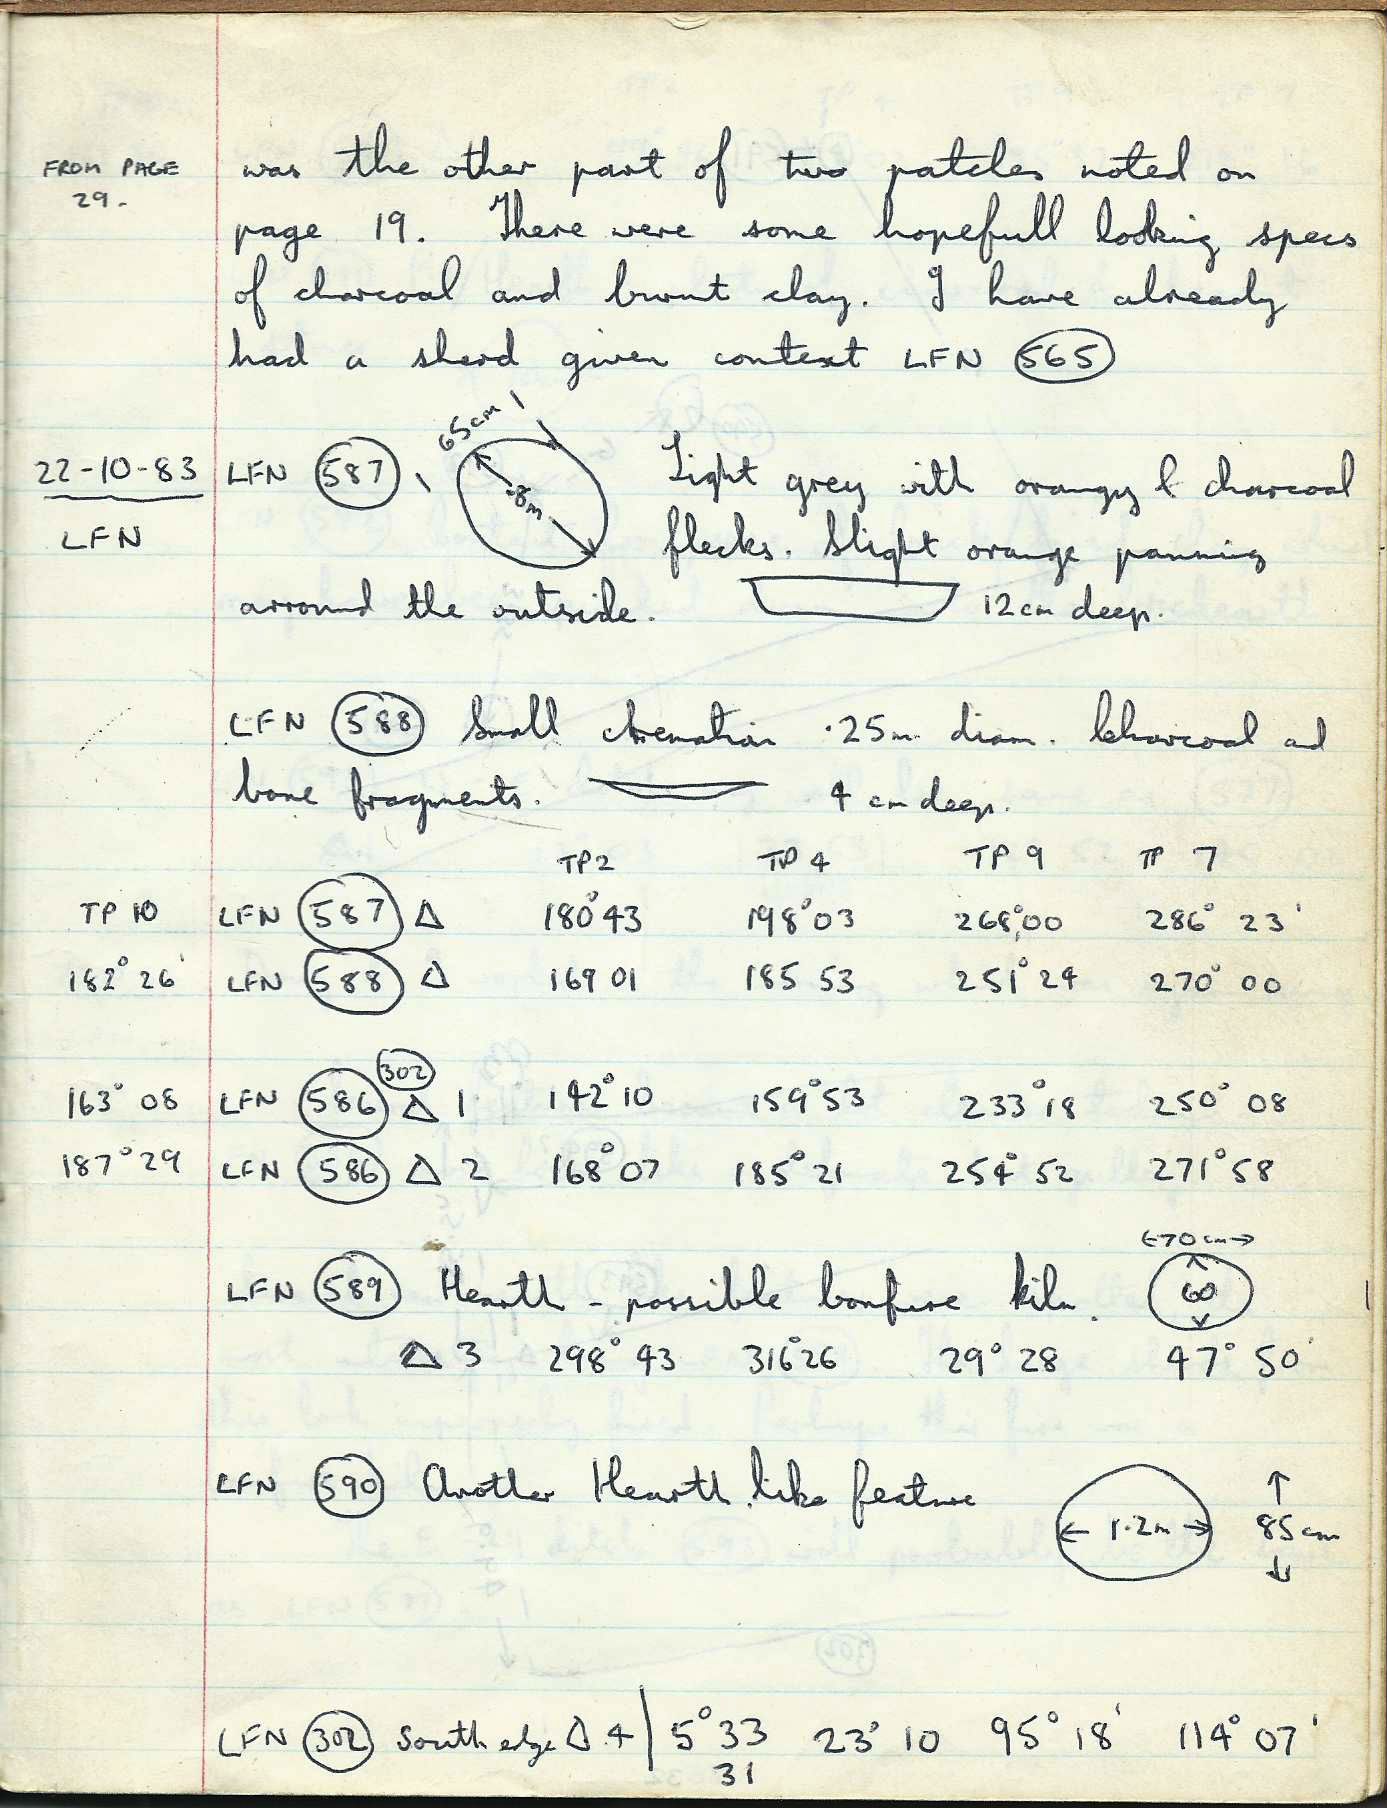 FROM PAGE
29.
was the other part of two patches noted on
page 19. There were some hopefull looking specs
of charcoal and burnt clay. I have already
had a sherd given context LFN 565
22-10-83
LFN
LFN 587 65cm .8m Light grey with orangy & charcoal
flecks. Slight orange panning
arround the outside. 12cm deep.
LFN 588 Small cremation .25m diam. Charcoal and
bone fragments. 4 cm deep.
TP2 TP 4 TP 9 TP 7
TP 10 LFN 587 △ 180°43 198°03 268°00 286° 23'
182° 26' LFN 588 △ 169 01 185 53 251° 24 270° 00
302
163° 08 LFN 586 △ 1 142°10 159°53 233°18 250° 08
187°29 LFN 586 △ 2 168°07 185°21 254° 52 271°58
←70cm→
LFN 589 Hearth - possible bonfire kiln. 60
△ 3 298° 43 316°26 29° 28 47° 50'
LFN 590 Another Hearth like feature ←1.2m→ 85cm
LFN 302 South edge △ 4 | 5°33 23° 10 95° 18' 114° 07'
31